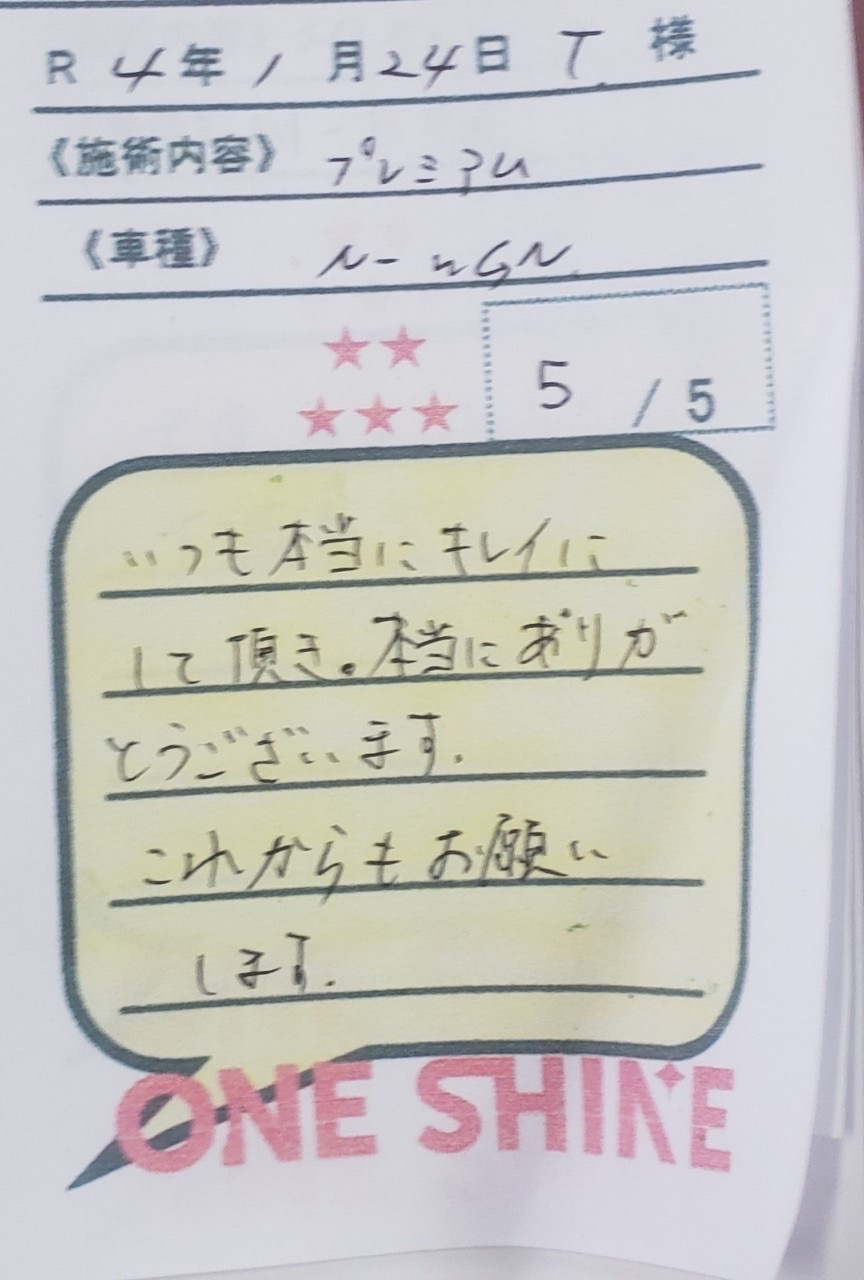 R 4年 1月24日 T. 様
《施術内容》 プレミアム
《車種》 N-WGN.
5 / 5
いつも本当にキレイに
して頂き。本当にありが
とうございます。
これからもお願い
します。
ONE SHINE